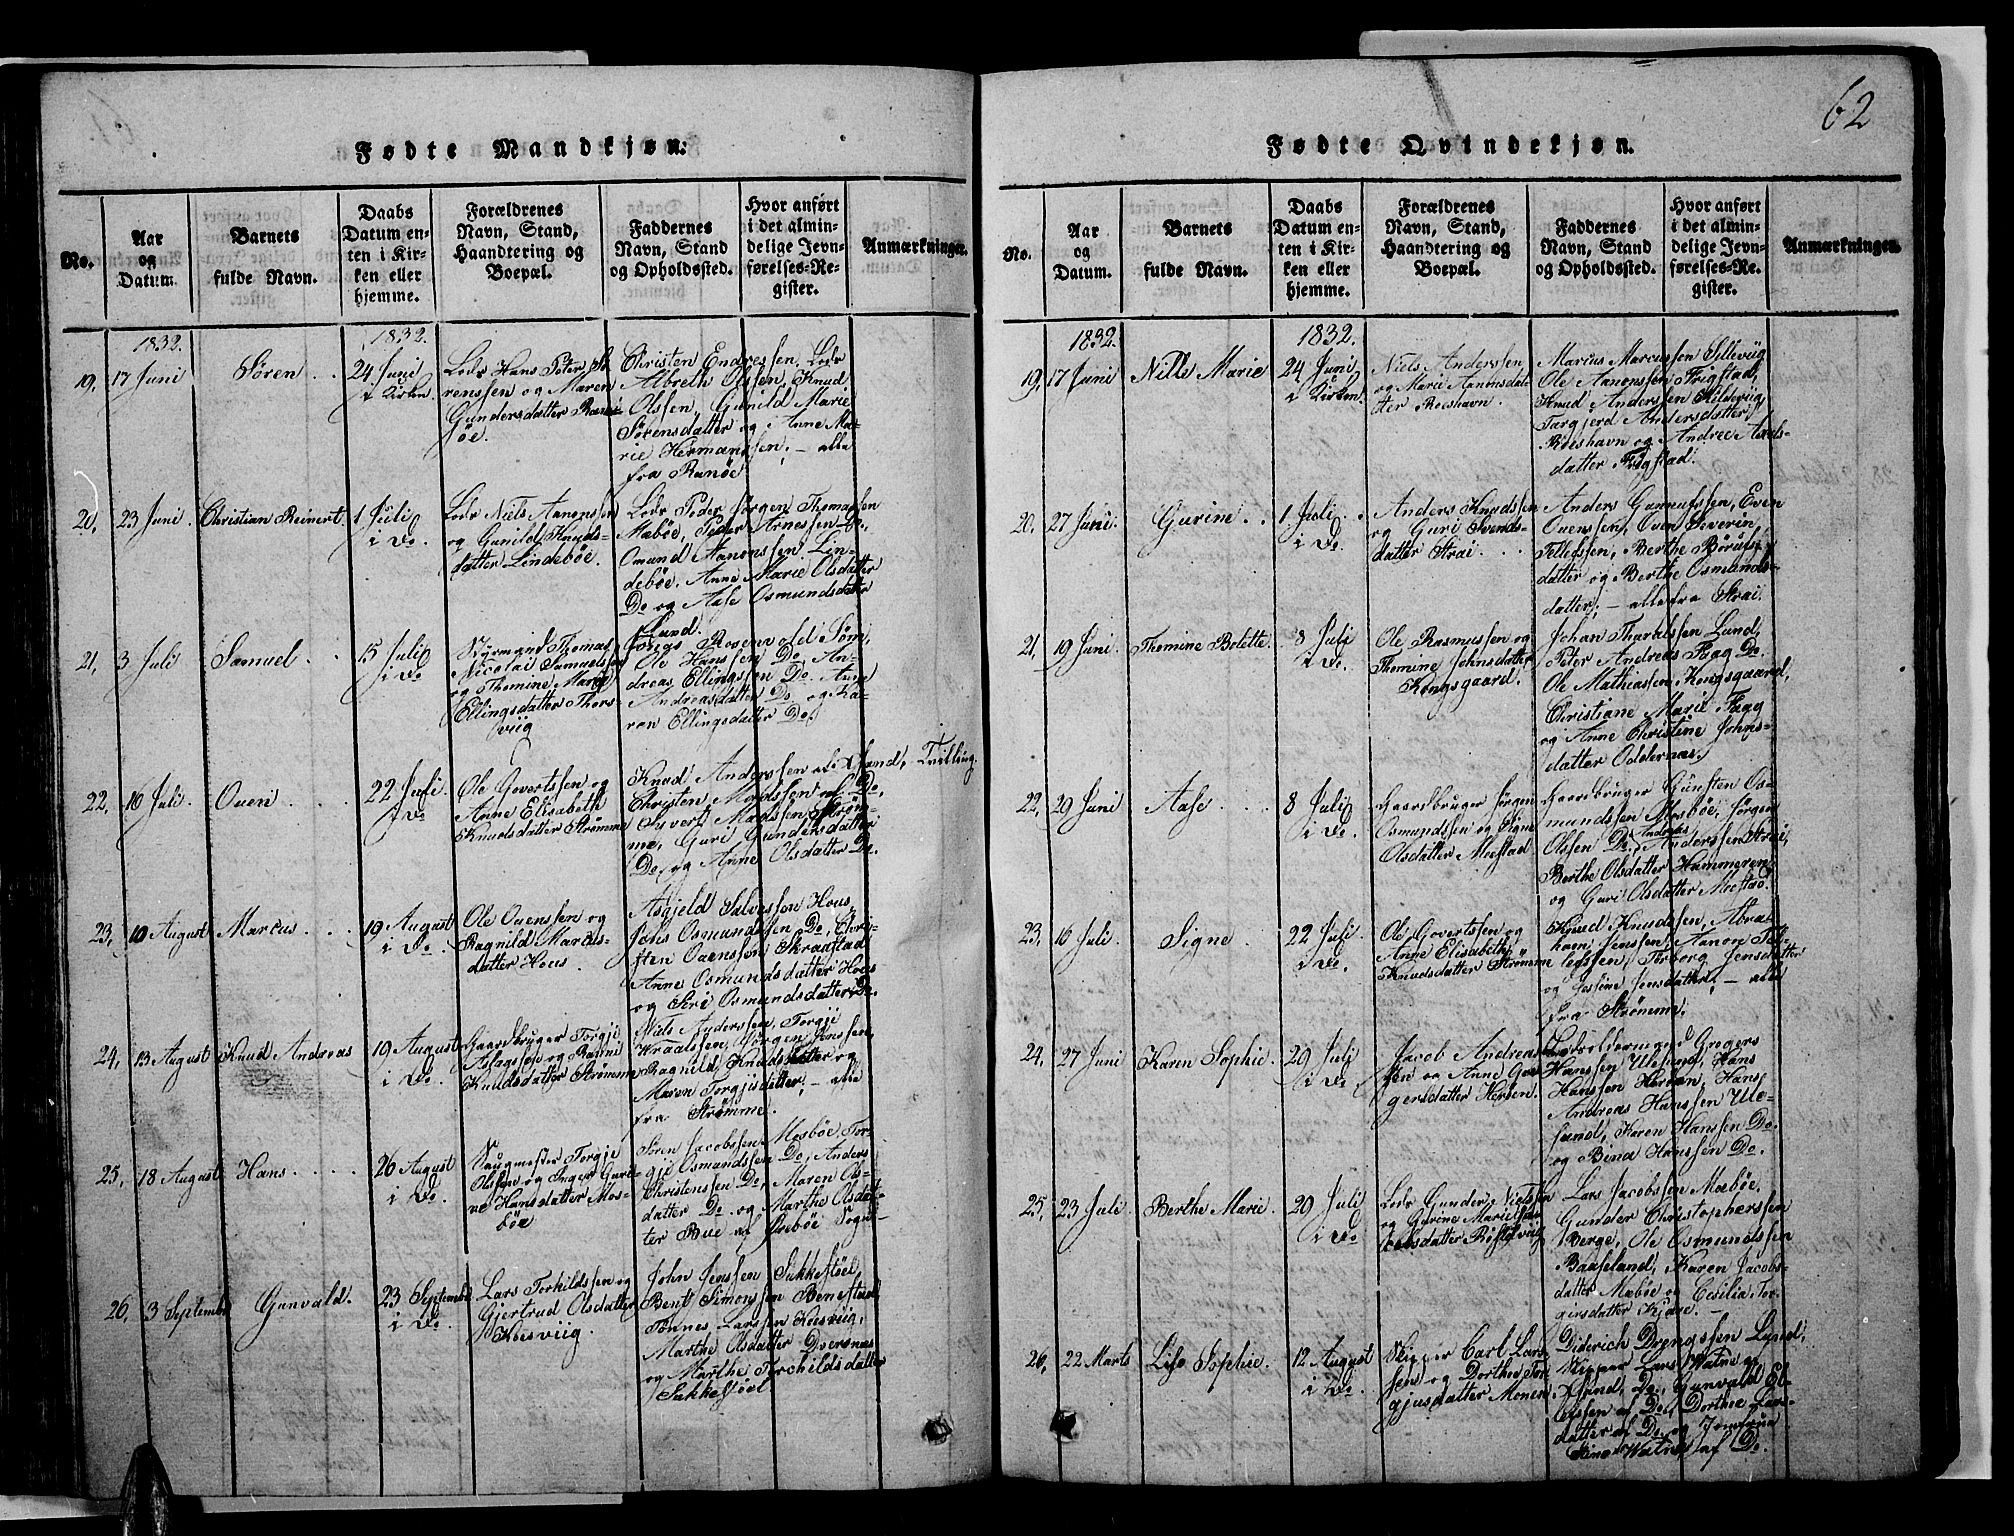 62
Fødte Mandkjøn.
No.
Aar
og
Datum.
Barnets
fulde Navn.
Daabs
Datum en-
ten i Kir-
ken eller
hjemme.
Forældrenes
Navn, Stand,
Haandtering og
Boepæl.
Faddernes
Navn, Stand
og Opholdssted.
Hvor anført
i det almin-
delige Jevn-
førelses-Re-
gister.
Anmærkninger.
1832.
1832.
19,
17 Juni
Søren
24 Juni
i Kirken
Lods Hans Peter Sö-
renssen og Maren
Gundersdatter Ran-
øe.
Christen Endressen, Lods
Albreth Olssen, Knud
Olssen, Gunild Marie
Sørensdatter og Anne Ma-
rie Hermanssen, – alle
fra Ranøe
20,
23 Juni
Christian Reinert
1 Juli
i Do.
Lods Niels Aanenssen
og Gunild Knuds-
datter Lindebøe.
Lods Peder Jørgen Thomassen
Mæbøe, Peder Arnessen Do,
Omund Aanonssen Lin-
debøe, Anne Marie Olsdatter
Do og Aase Osmundsdatter
Lund.
21,
3 Juli
Samuel
15 Juli
i Do
Styrmand Thomas
Nicolai Samuelsen
og Thomine Marie
Ellingsdatter Thors-
viig
Rosenvold Søm,
Ole Hanssen Do, An-
dreas Ellingssen Do, Anne
Andreasdatter Do og Ka-
ren Ellingsdatter Do.
22,
16 Juli
Ouen
22 Juli
i Do
Ole Govertssen og
Anne Elisabeth
Knudsdatter Strømme
Knud Anderssen af Xsand,
Christen Madssen af Do,
Syvert Madssen Strøm-
me, Guri Gundersdatter
Do, og Anne Olsdatter Do.
Tvilling.
23,
10 August
Marcus
19 August
i Do
Ole Ouenssen og
Ragnild Marcus-
datter Hous
Asgjeld Salvessen Hous,
Johs Osmundssen Do, Chri-
sten Ouenssen Skraastad
Anne Osmundsdatter Hous
og Siri Osmundsdatter Do.
24,
13 August
Knud Andreas
19 August
i Do
Gaardbruger Torgje
Aslagsen og Ragni
Knudsdatter Strømme
Niels Anderssen, Torgje
Jørgen Jenssen,
Ragnild Knudsdatter og
Maren Torgjusdatter, – alle
fra Strømme.
25,
18 August
Hans
26 August
i Do
Saugmester Torgje
Olssen og Inger Guri-
ne Hansdatter Mos-
bøe
Søren Jacobssen Mosbøe, Tor-
gje Osmundssen Do, Anders
Christenssen Do, Maren Os-
datter Do og Marthe Olsdat-
ter Bue af Øiebøe Sogn
26,
3 Septembr
Gunvald.
23 Septembr
i Do
Lars Torkildssen og
Gjertrud Olsdatter
Koesviig.
John Jenssen Sukkestøel,
Bent Simonssen Benestad
Tønnes Larssen Koesviig,
Marthe Olsdatter Dversnæs
og Marthe Torchildsdatter
Sukkestøel
Fødte Qvindekjøn.
No.
Aar
og
Datum.
Barnets
fulde Navn.
Daabs
Datum en-
ten i Kir-
ken eller
hjemme.
Forældrenes
Navn, Stand,
Haandtering og
Boepæl.
Faddernes
Navn, Stand
og Opholdssted.
Hvor anført
i det almin-
delige Jevn-
førelses-Re-
gister.
Anmærkninger.
1832.
1832.
19,
17 Juni
Nille Marie
24 Juni
i Kirken.
Niels Anderssen
og Marie Aanonsdat-
ter Roeshavn.
Marius Marcussen Silleviig
Ole Aanenssen Frigstad,
Knud Anderssen Kildeviig
Targjerd Andersdatter
Roeshavn og Andrea Axels-
datter Frigstad.
20,
27 Juni
Gurine
1 Juli
i Do.
Anders Knudssen
og Guri Svends-
datter Strai
Anders Gunnufssen, Even
Ouenssen, Ouen Severin
Tellefssen, Berthe Børufs-
datter og Berthe Osmunds-
datter, – alle fra Strai
21,
19 Juni
Thomine Bolette
8 Juli
i Do.
Ole Rasmussen og
Thomine Johnsdatter
Kongsgaard.
Johan Tharaldssen Lund,
Peter Andreas Fagg Do.
Ole Mathiassen Kongsgaard,
Christiane Marie Fagg
og Anne Christine Johns-
datter Oddernæs.
22,
29 Juni
Aase
8 Juli
i Do.
Gaardbruger Jørgen
Osmundssen og Signe
Olsdatter Moestad
Gaardbruger Gunsten Os-
mundssen Mosbøe, Jørgen
Olssen Do, Andreas Anderssen Strai,
Berthe Olsdatter Hammeren
og Guri Olsdatter Moestad.
23,
16 Juli
Signe
22 Juli
i Do.
Ole Govertssen og
Anne Elisabeth
Knudsdatter Strømme
Knud Knudssen, Abra-
ham Jenssen, Aanon Tel-
lefssen, Torborg Jensdatter
og Jossine Jensdatter, – alle
fra Strømme.
24,
27 Juni
Karen Sophie
29 Juli
i Do
Jacob Andreas
sen og Anne Gre-
gersdatter Herøen.
Gregers
Hanssen Ulesund, Hans
Hanssen Herøen, Hans
Andreas Hanssen Ule-
sund, Karen Hanssen Do
og Bina Hanssen Do.
25,
23 Juli
Berthe Marie
29 Juli
i Do
Lods Gunder Nielssen
og Gurine Marie Ja-
cobsdatter Røstelviig
Lars Jacobssen Mæbøe,
Gunder Christopherssen
Berge, Ole Osmundssen
Baaseland, Karen Jacobs-
datter Mæbøe og Cesilia Tor-
girsdatter Kjære.
26,
22 Marts
Lise Sophie.
12 August
i Do
Skipper Carl Lars-
sen og Dorthe Tor-
gjusdatter Monen
Diderich Drengssen Lund,
Skipper Lars Watne af
Xsand, Do, Gunvald El-
lefssen af Do, Dorthe Lars-
datter af Do og Jomfrue
Stine Watne af Do.